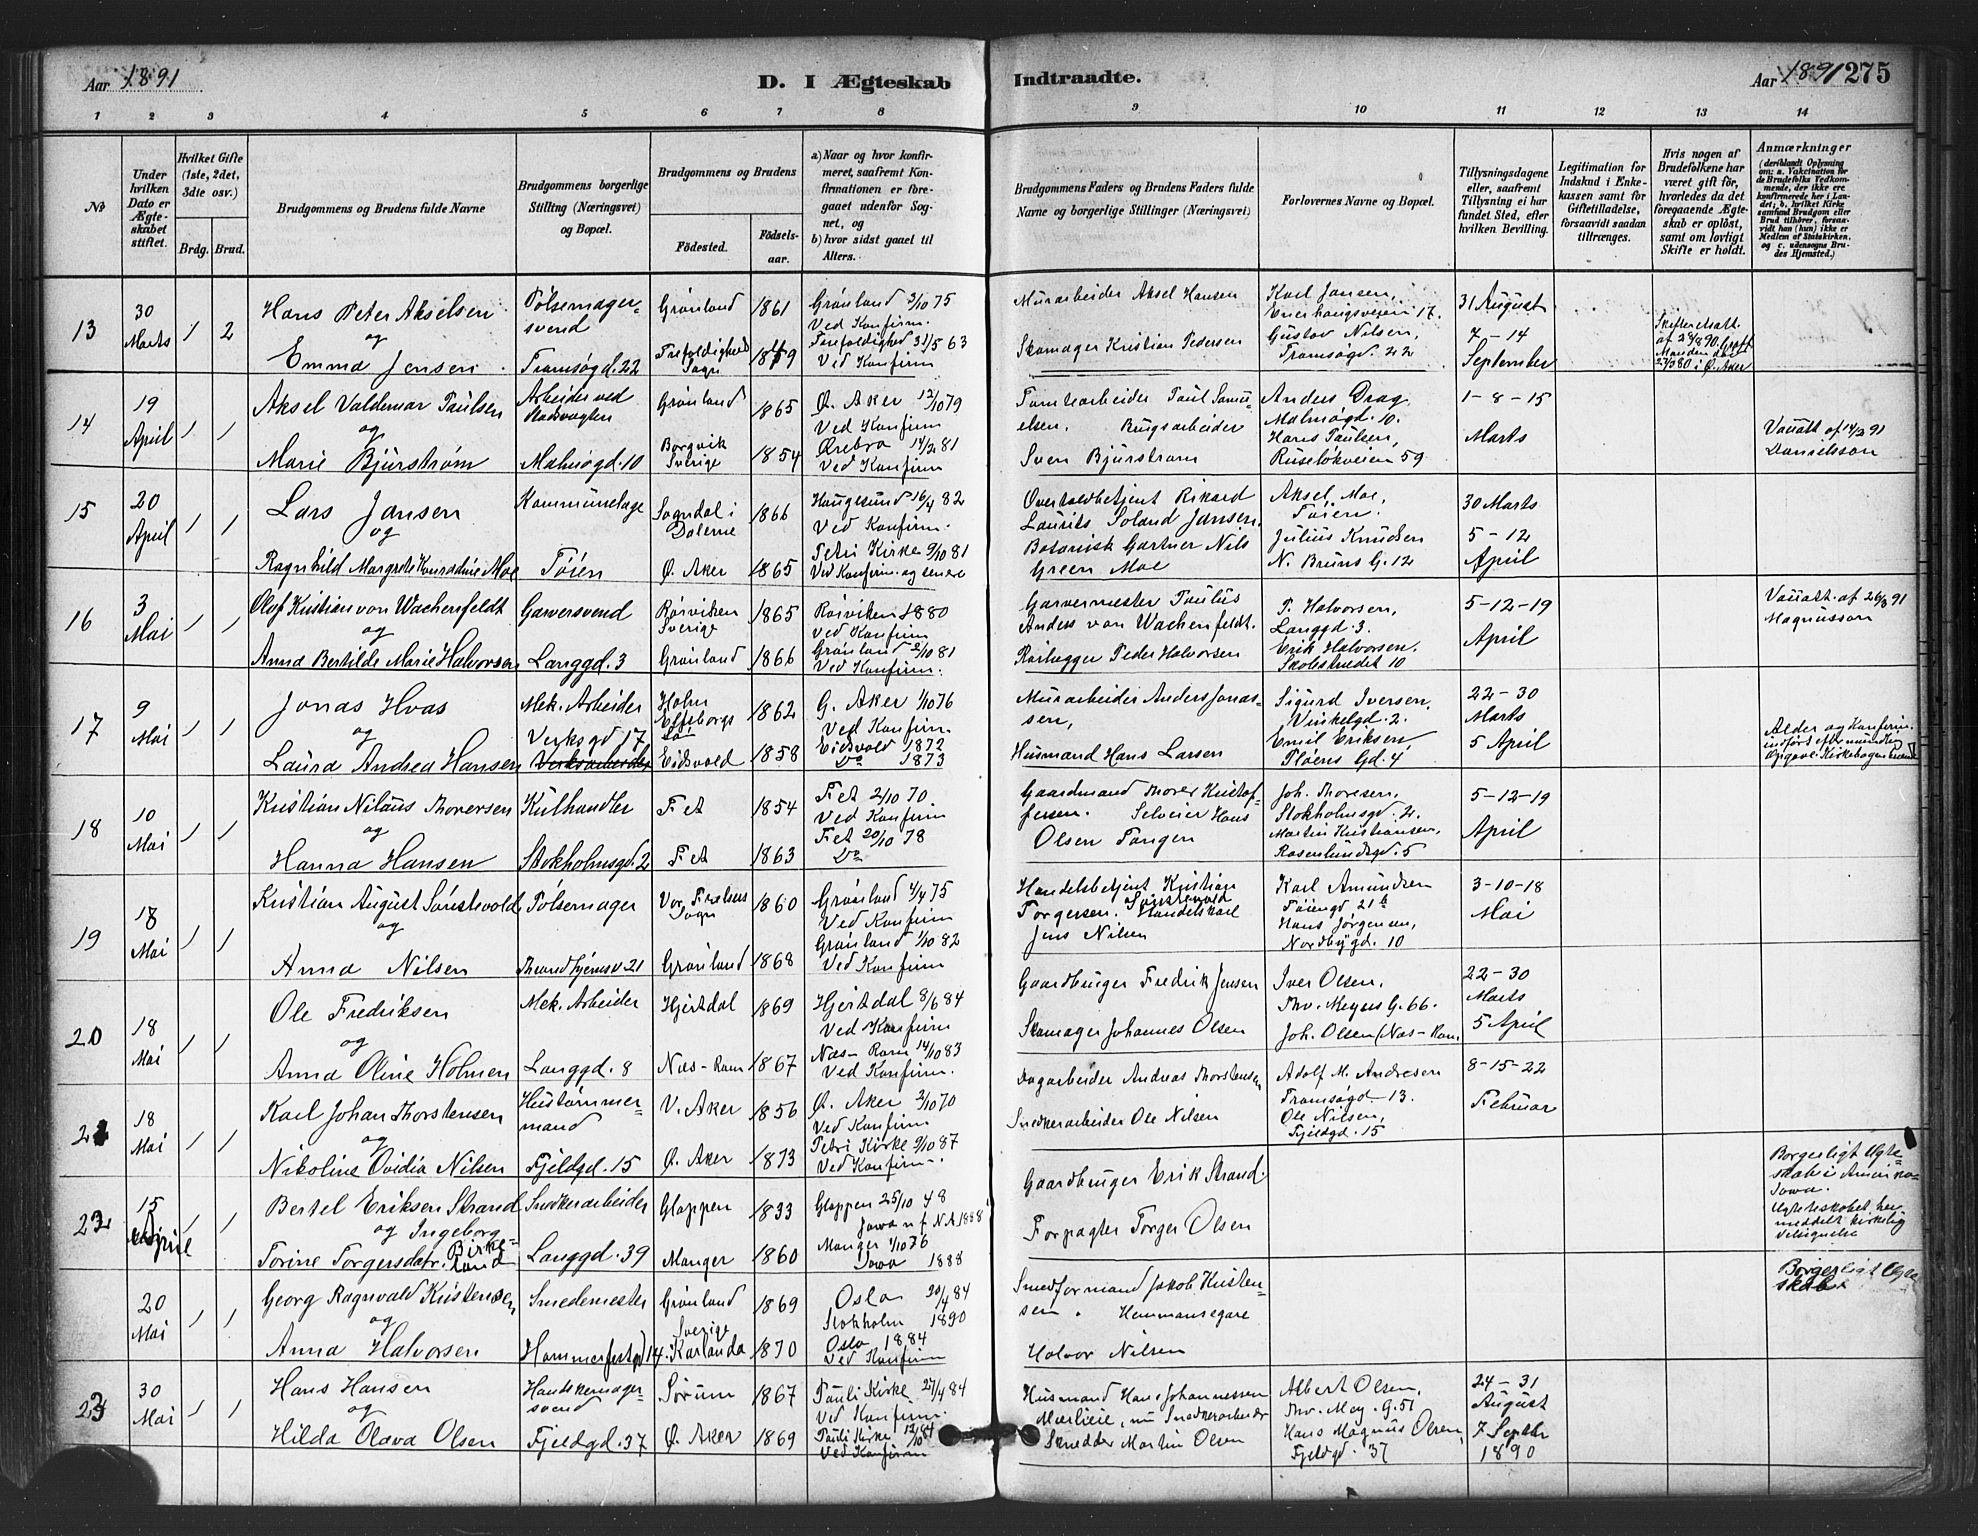 Aar 1891
D. I Ægteskab
Indtraadte.
Aar 1891 275
1 2 3 4 5 6 7 8 9 10 11 12 13 14
No
Under hvilken Dato er Ægte-skabet stiftet.
Hvilket Gifte (1ste, 2det, 3die osv.)
Brdg. Brud.
Brudgommens og Brudens fulde Navne
Brudgommens borgerlige Stilling (Næringsvei) og Bopæl.
Brudgommens og Brudens
Födested.
Födsels-aar.
a) Naar og hvor konfir-meret, saafremt Kon-firmationen er fore-gaaet udenfor Sog-net, og
b) hvor sidst gaaet til Alters.
Brudgommens Faders og Brudens Faders fulde Navne og borgerlige Stillinger (Næringsvei)
Forlovernes Navne og Bopæl.
Tillysningsdagene eller, saafremt Tillysning ei har fundet Sted, efter hvilken Bevilling.
Legitimation for Indskud i Enke-kassen samt for Giftetilladelse, forsaavidt saadan tiltrænges.
Hvis nogen af Brudefolkene har været gift för, hvorledes da det foregaaende Ægte-skab er oplöst, samt om lovligt Skifte er holdt.
Anmærkninger
(deriblandt Oplysning om: a. Vaccination for de Brudefolks Vedkom-mende, der ikke ere konfirmerede her i Lan-det; b. hvilket Kirke-samfund Brudgom eller Brud tilhörer, forsaa-vidt han (hun) ikke er Medlem af Statskirken, og c. udensogns Bru-des Hjemsted.)
13 30 Marts 1 2
Hans Peter Akselsen og Emma Jensen
Pølsemager-svend Tromsøgd. 22
Grønland 1861
Trefoldigheds Sogn
Grønland 3/10 75 Ved Konfirm.
Trefoldighed 31/5 63 Ved Konfirm
Murarbeider Aksel Hansen
Skomager Kristian Pedersen
Karl Jansen, Enerhaugsveien 17.
Gustav Nilsen, Tromsøgd. 22
31 August 7 - 14 September
14 19 April 1 1
Aksel Valdemar Paulsen og Marie Bjurstrøm
Arbeider ved Malmøgd. 10
Grønland 1865
Borgvik Sverige 1854
Ø. Aker 12/10 79 Ved Konfirm
Ørebro 14/2 81 Ved Konfirm
Tomtearbeider Paul Samu-elsen. Brugsarbeider Sven Bjurstrøm
Anders Drag, Malmøgd. 10.
Hans Paulsen, Ruseløkveien 59
1 - 8 - 15 Marts
Vauatt. af 14/3 91 Danielsson
15 20 April 1 1
Lars Jansen og Ragnhild Margrete Konradine Moe
Kommunelæge Tøien
Sogndal i Dalerne 1866
Ø. Aker 1865
Haugesund 16/4 82 Ved Konfirm.
Petri Kirke 9/10 81 Ved Konfirm. og senere
Overtoldbetjent Rikard Laurits Soland Jansen.
Botanisk Gartner Nils Green Moe
Aksel Moe, Tøien.
Julius Knudsen N. Bruns G. 12
30 Marts 5 - 12 April
16 3 Mai 1 1
Olof Kristian von Wachenfeldt og Anna Bertilde Marie Halvorsen
Garversvend Langgd. 3
Rörviken Sverige 1865
Grønland 1866
Rörviken 1880 Ved Konfirm
Grønland 2/10 81 Ved Konfirm.
Garvermester Paulus Anders von Wachenfeldt.
Rørlægger Peder Halvorsen
P. Halvorsen, Langgd. 3.
Erik Halvorsen. Skolestrædet 10
5 - 12 - 19 April
Vauatt. af 26/3 91 Magnusson
17 9 Mai 1 1
Jonas Hvas og Laura Andrea Hansen
Mek. Arbeider Verksgd 17
Holm Elfsborgs Län 1862
Eidsvold 1858
G. Aker 1/10 76 Ved Konfirm.
Eidsvold 1872 Do 1873
Murarbeider Anders Jonas-sen,
Husmand Hans Larsen
Sigurd Iversen, Vinkelgd. 2.
Emil Eriksen Pløens Gd. 4
22 - 30 Marts 5 April
Alder og Konfirm. indført efter mundtlig Opgave.
18 10 Mai 1 1
Kristian Nilaus Thoresen og Hanna Hansen
Kulhandler Stokholmsgd. 2
Fet 1854
Fet 1863
Fet 2/10 70. Ved Konfirm
Fet 20/10 78 Do
Gaardmand Thorer Kristof-fersen. Selveier Hans Olsen Tangen
Joh. Thoresen, Stokholmsgd. 2.
Martin Kristiansen, Rosenlundsgd. 5
5 - 12 - 19 April
19 18 Mai 1 1
Kristian August Sønstevold og Anna Nilsen
Pølsemager Throndhjemsv 21
Vor Frelsers Sogn 1860
Grønland 1868
Grønland 4/4 75 Ved Konfirm
Grønland 1/10 82 Ved Konfirm
Handelsbetjent Kristian Torgersen Sønstevold. Handelskarl Jens Nilsen
Karl Amundsen Tøiengd. 21 b
Hans Jørgensen, Nordbygd. 10
3 - 10 - 18 Mai
20 18 Mai 1 1
Ole Fredriksen og Anna Oline Holmen
Mek. Arbeider Langgd. 8
Hjertdal 1869
Næs - Rom 1867
Hjertdal 8/6 84 Ved Konfirm
Næs - Rom 14/10 83 Ved Konfirm.
Gaardbruger Fredrik Jensen
Skomager Johannes Olsen
Iver Olsen. Thv. Meyers G. 66.
Joh. Olsen (Næs - Rom.
22 - 30 Marts 5 April
21 18 Mai 1 1
Karl Johan Thorstensen og Nikoline Ovidia Nilsen
Hustømmer-mand Fjeldgd. 15
V. Aker 1856
Ø. Aker 1873
Ø. Aker 2/10 70 Ved Konfirm
Petri Kirke 9/10 87 Ved Konfirm.
Dagarbeider Andreas Thorstensen
Snedkerarbeider Ole Nilsen
Adolf M. Andresen Tromsøgd. 13.
Ole Nilsen, Fjeldgd. 15
8 - 15 - 22 Februar
22 15 April 1 1
Bertel Eriksen Strand og Ingeborg Torine Torgersdatr. Birke-land
Snedkerarbeider Langgd. 39
Gloppen 1833
Manger 1860
Gloppen 25/10 48 Iowa N. A. 1888
Manger 1/10 76 Iowa 1888
Gaardbruger Erik Strand.
Forpagter Torger Olsen
Borgerligt Ægte-skab i Amerika Iowa.
Ægteskabet her meddelt kirkelig Velsignelse
20 Mai 1 1
Georg Ragnvald Kristensen og Anna Halvorsen
Smedemester Hammerfestgd 14.
Grønland 1869
Sverige Karlanda 1870
Oslo 20/4 84 Stokholm 1890
Oslo 1884 Ved Konfirm
Smedformand Jakob Kristen-sen. Hemmansegare Halvor Nilsen
Borgerligt Ægte-skab
23 30 Mai 1 1
Hans Hansen og Hilda Olava Olsen
Handskemager-svend Fjeldgd. 37
Sørum 1867
Ø. Aker 1869
Pauli Kirke 27/4 84 Ved Konfirm.
Pauli Kirke 12/10 84 Ved Konfirm
Husmand Hans Johannessen Mærlieie, nu Snedkerarbeider
Skrædder Martin Olsen
Albert Olsen, Thv. Mey. G. 51
Hans Magnus Olsen, Fjeldgd. 37
24 - 31 August 7 Septbr 1890